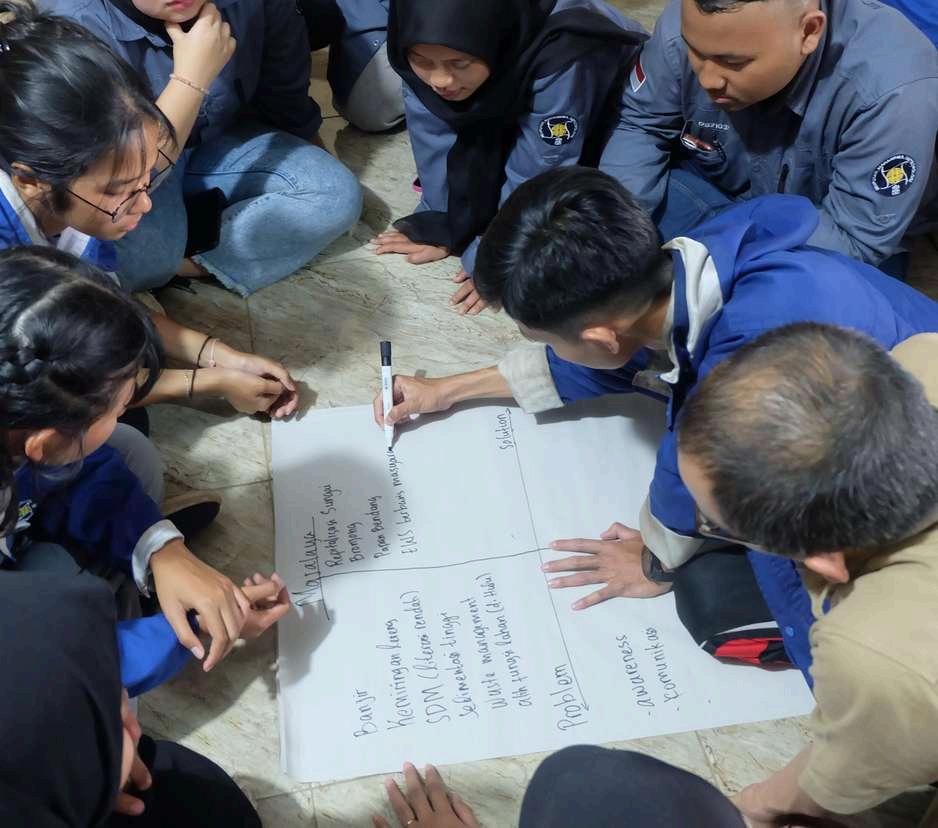 Sungai
Bronjong
Papan Bendung
EWS berbasis masyara
Solution
Banjir
Kemiringan lereng
SDM (literasi rendah)
sedimentasi tinggi
Waste management
alih fungsi lahan (di Hulu)
Problem
- awareness
- Komunikasi